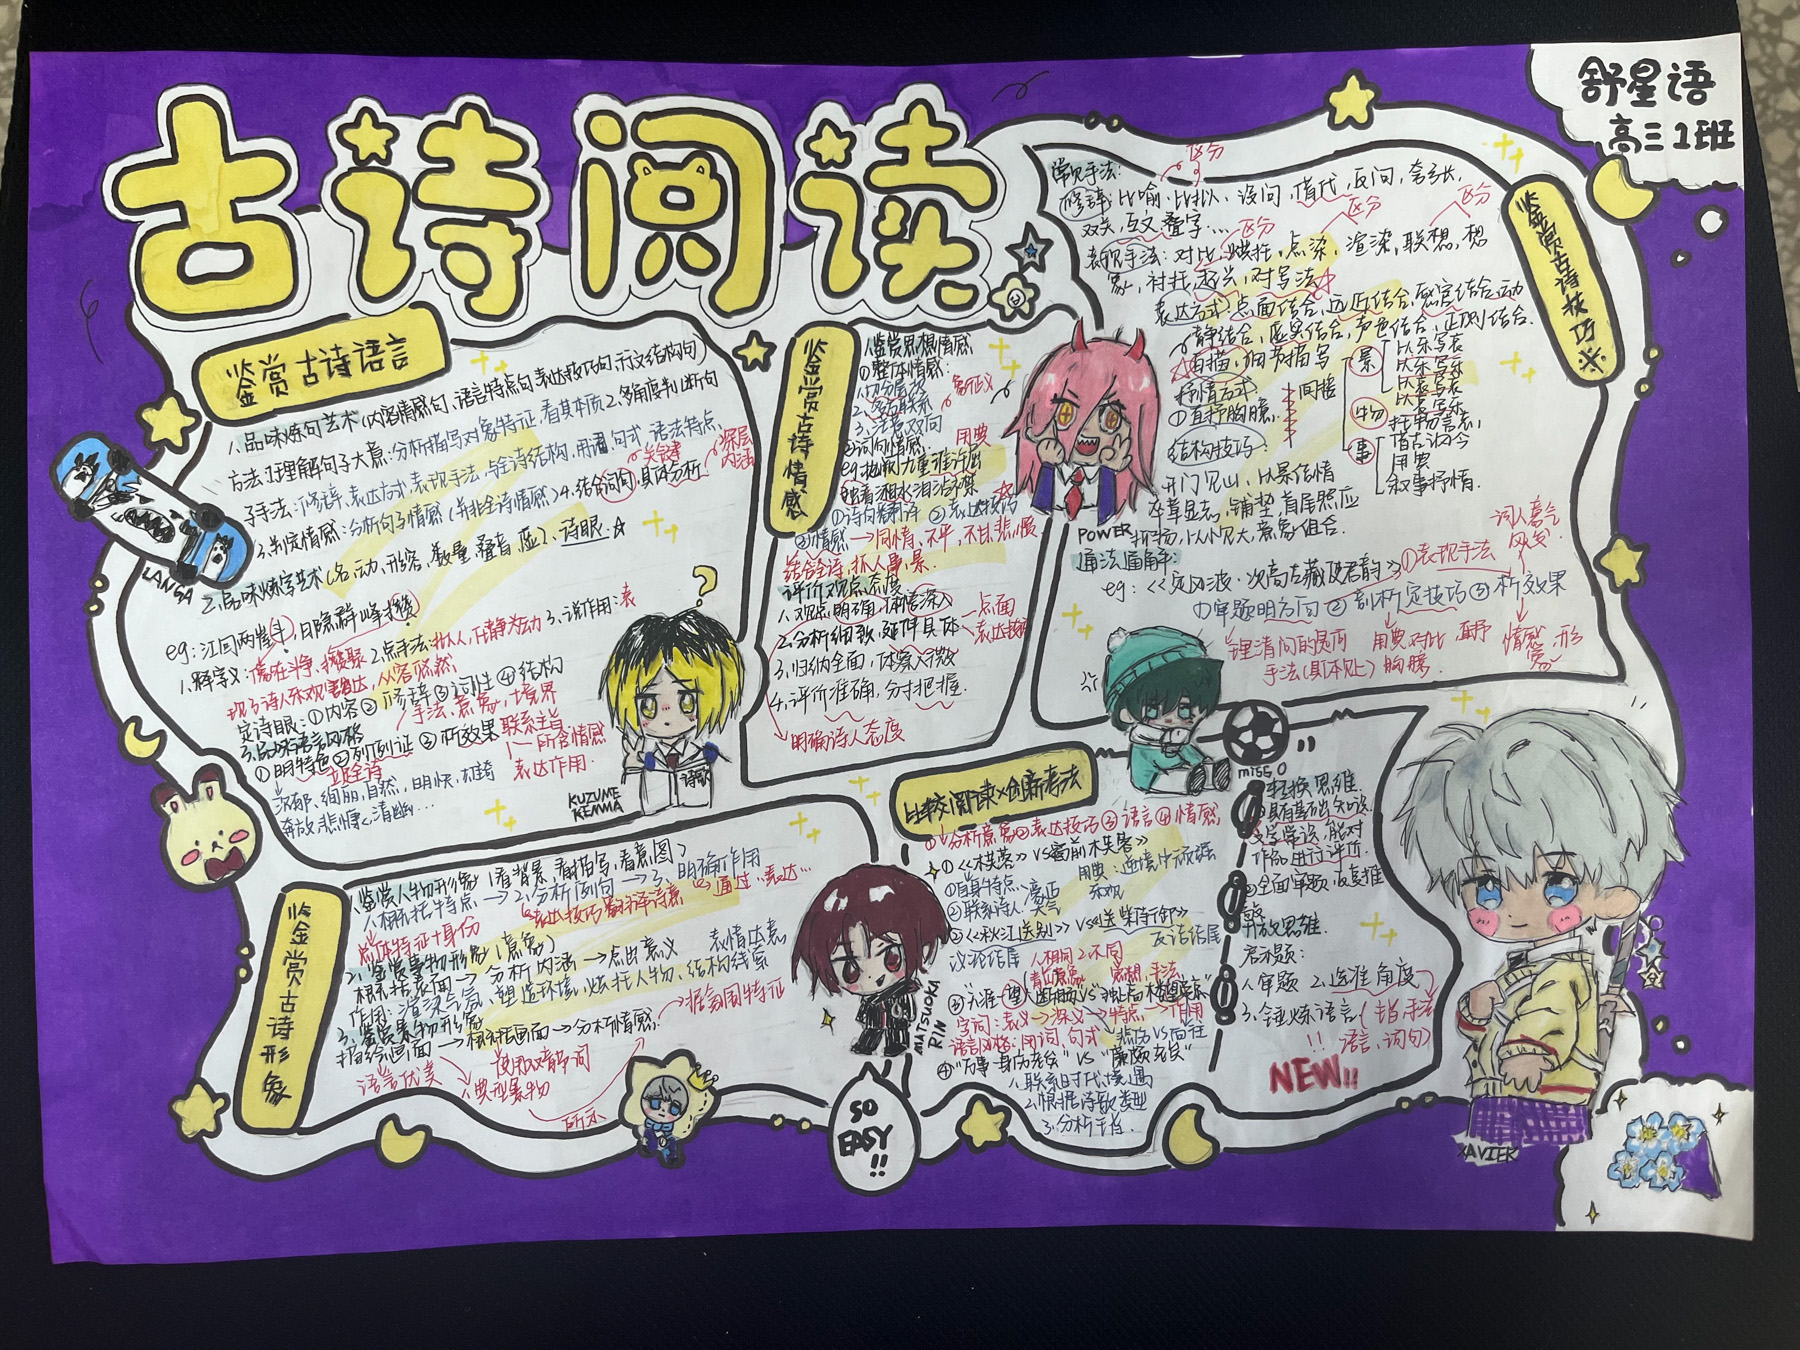 古诗阅读
舒星语
高三1班
鉴赏古诗语言
1.品味炼句艺术(内容情感句、语言特点句、表达技巧句、示文结构句)
方法:1.理解句子大意:分析描写对象特征,看其本质 2.多角度判断句
子手法:修辞,表达方式,表现手法,与全诗结构,用词,句式 语法特点,
关键 深层内涵
3.判定情感:分析句子情感(并非全诗情感) 4.结合词句,具体分析
2.品味炼字艺术(名、动、形容、数量、叠音、虚)、诗眼.☆
eg:江回两崖斗,日隐群峰攒
1.释字义: 2.点手法:拟人,化静为动 3.说作用:表
现了诗人乐观豁达,从容
定诗眼:①内容②修辞③词性④结构
手法,意象,境界
3.品味语言风格
①明特色②列例证③析效果
联系主旨
所含情感
表达作用.
沉郁、绚丽,自然,明快,
奔放,悲慷,清幽…
LANGA
?
KUZUME KENMA
诗歌
鉴赏古诗情感
1.鉴赏思想情感
①整体情感:
1.切分层次
2.多句联系
3.注意双向
②词句情感.
用典
①诗句翻译 ②表达技巧
③情感→同情,不平,不甘,悲,慨
结合全诗,抓人、事、景.
评价观点态度
1.观点明确,体悟深入
2.分析细致,延伸具体
点面
表达技巧
3.归纳全面,体察入微
4.评价准确,分寸把握.
明确诗人态度
鉴赏古诗技巧※
常见手法:
区分
修辞:比喻,比拟,设问,借代,反问,夸张,
双关,互文,叠字…
区分 区分 区分
表现手法:对比,烘托,点染,渲染,联想,想
象,衬托,起兴,对写法☆
表达方式:点面结合,远近结合,感官结合,动
静结合,虚实结合,声色结合,正侧结合.
白描,细节描写
抒情方式:
①直抒胸臆. 间接
景 以乐写哀
以乐写乐
以哀写哀
物 托物言志,
事 借古讽今
用典
叙事抒情.
结构技巧:
开门见山,以景结情
卒章显志,铺垫,首尾照应
抑扬,以小见大,意象组合.
通法通角:
eg:《定风波·次高左藏使君韵》①表现手法
词人豪气
①审题明方向②剖析定技巧③析效果
理清问的是何手法(具体处)
用典 对比 直抒胸臆
情感,形象
POWER
比较阅读×创新考法
①分析意象②表达技巧③语言④情感
①《木芙蓉》VS《窗前木芙蓉》
①自身特点、高洁
②联系诗人,
用典:逆境中顽强乐观
②《秋江送别》VS《送柴侍御》
反语结尾
1.相同 2.不同
字词:表义→深义→特点→作用
语言风格:用词,句式
④"万事"身为老矣"VS"廉颇老矣"
1.联系时代境遇
2.根据诗歌类型
3.分析主旨.
MISEO
转换思维.
①具有基础知识,
文学常识,能对
作品进行评价.
②全面审题,反复推
敲
开放思维.
启示题:
1.审题 2.选准角度
3.锤炼语言(指手法
!! 语言、词句)
NEW!!
鉴赏古诗形象
1.鉴赏人物形象(看背景、看描写、看意图)
1.概括特点→2.分析例句→3.明确作用
总体特征+身份
表达技巧 翻译诗意
通过…表达…
2.鉴赏事物形象(意象)
概括表面→分析内涵→点出意义
表情达意
作用:渲染气氛,塑造环境,烘托人物,结构线索
3.鉴赏景物形象
描绘画面→概括画面→分析情感.
据氛围特征
语言优美
典型景物
所示
MATSUOKA RIN
SO EASY!!
XAVIER